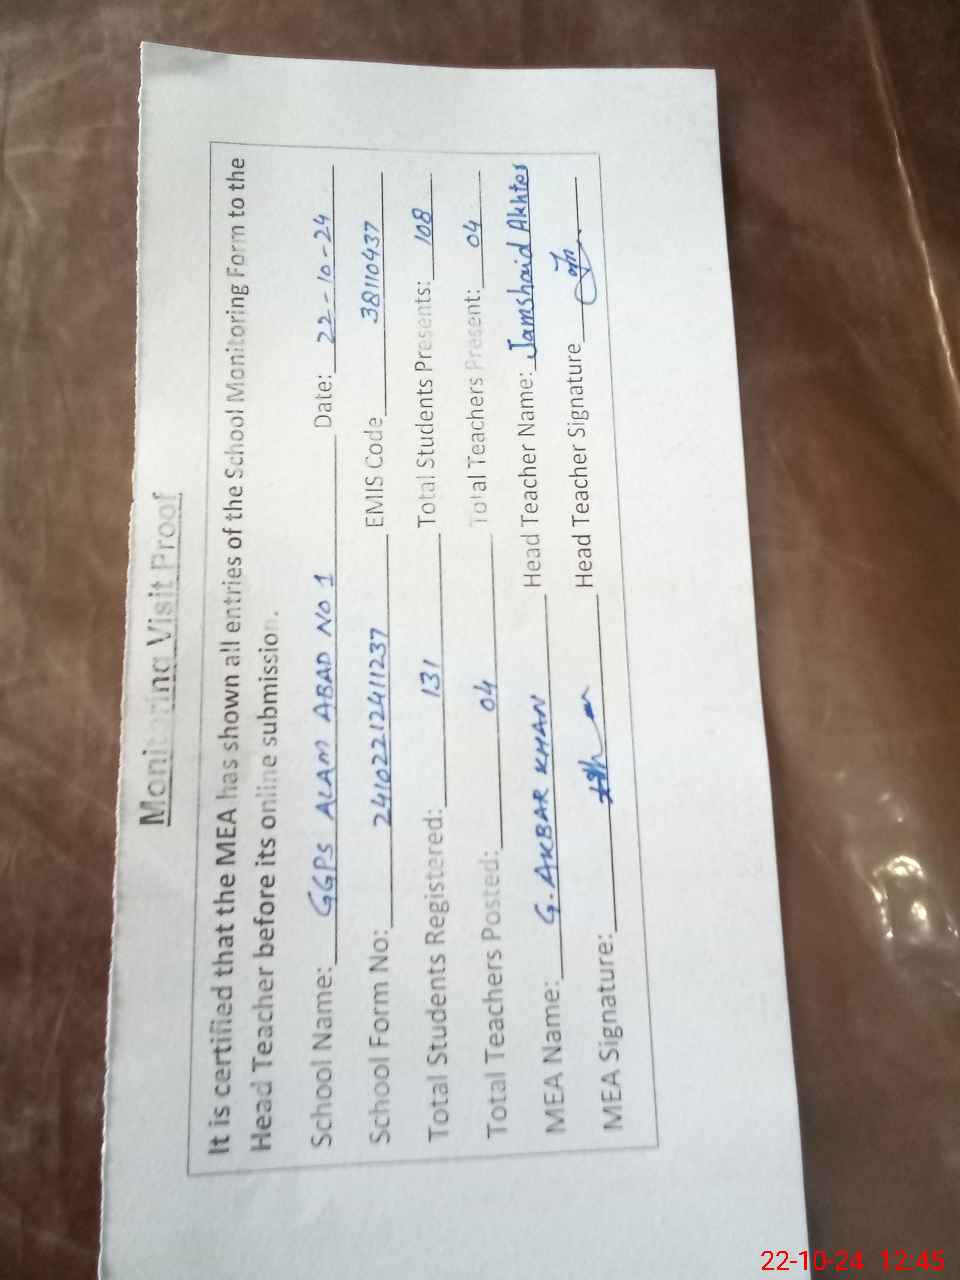 Monitoring Visit Proof
It is certified that the MEA has shown all entries of the School Monitoring Form to the
Head Teacher before its online submission.
School Name: GGPS ALAM ABAD No 1 Date: 22-10-24
School Form No: 24102212411237 EMIS Code 38110437
Total Students Registered: 131 Total Students Presents: 108
Total Teachers Posted: 04 Total Teachers Present: 04
MEA Name: G. AKBAR KHAN Head Teacher Name: Jamshaid Akhter
MEA Signature: Head Teacher Signature
22-10-24 12:45